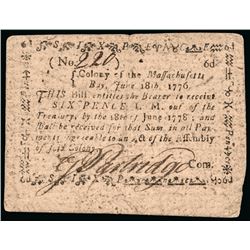 SIX PENCE
(No. 220) 6d
Colony of the Massachusetts
Bay, June 18th, 1776.
THIS Bill entitles the Bearer to receive
SIX PENCE L. M. out of the
Treasury, by the 18th of June 1778; and
shall be received for that Sum, in all Pay-
ments, agreeable to an Act of the Assembly
of said Colony.
Com.